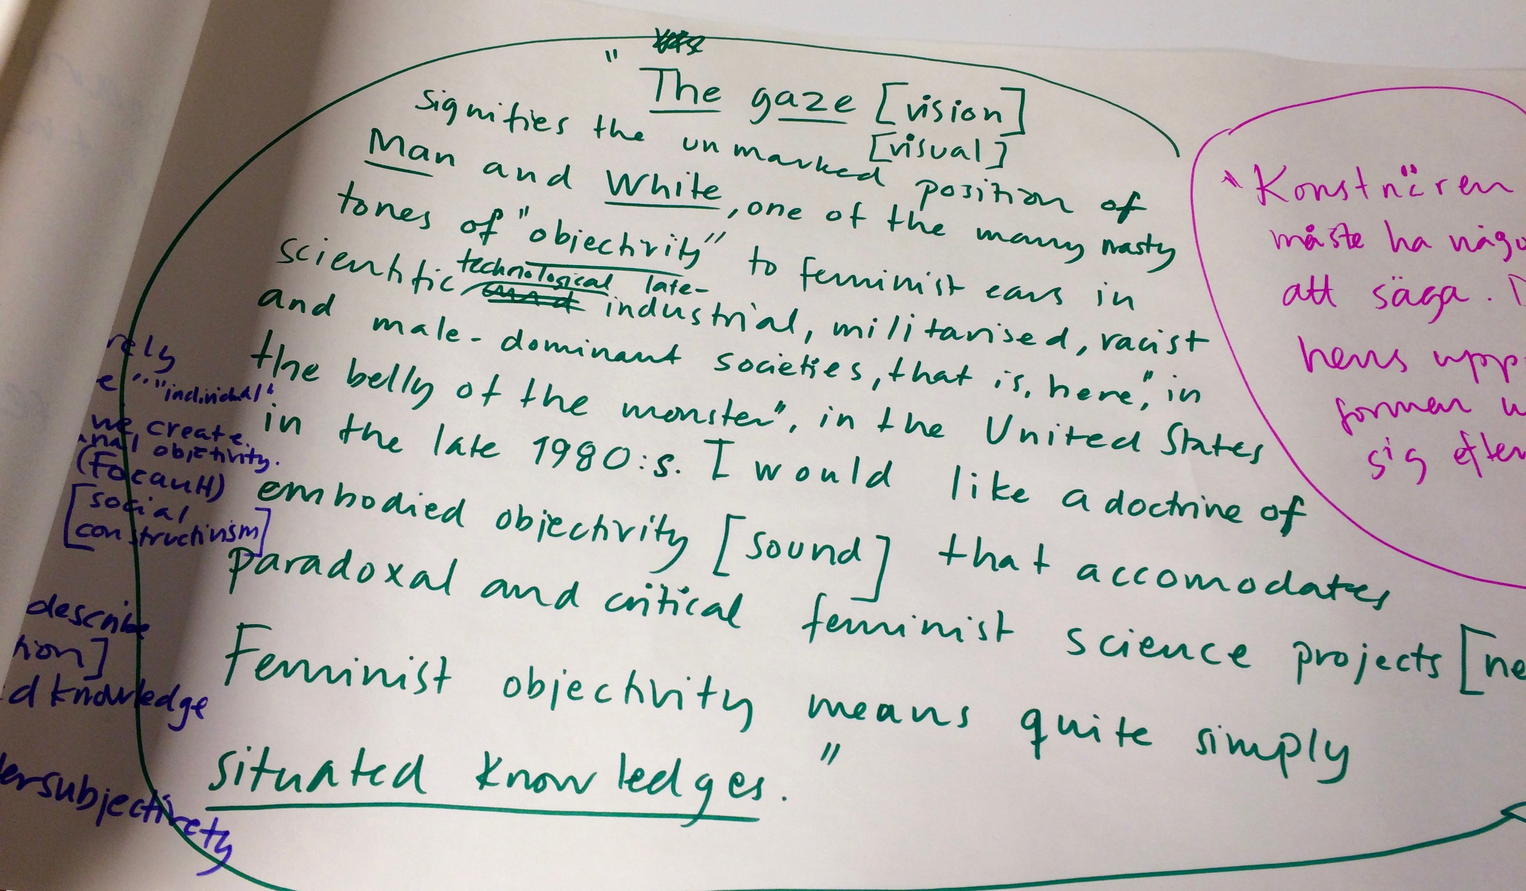 " The gaze [vision]
[visual]
signifies the unmarked position of
Man and White, one of the many nasty
tones of "objectivity" to feminist ears in
scientific technological late-
industrial, militarised, racist
and male-dominant societies, that is, here", in
the belly of the monster", in the United States
in the late 1980:s. I would like a doctrine of
embodied objectivity [sound] that accomodates
paradoxal and critical feminist science projects [ne
Feminist objectivity means quite simply
situated knowledges. "
rely
e ""individual"
we create
objectivity.
(Focault)
[social
constructivism]
describe
tion]
d knowledge
ersubjectivety
Konstnären
måste ha någo
att säga. D
hens upp
formen u
sig efter